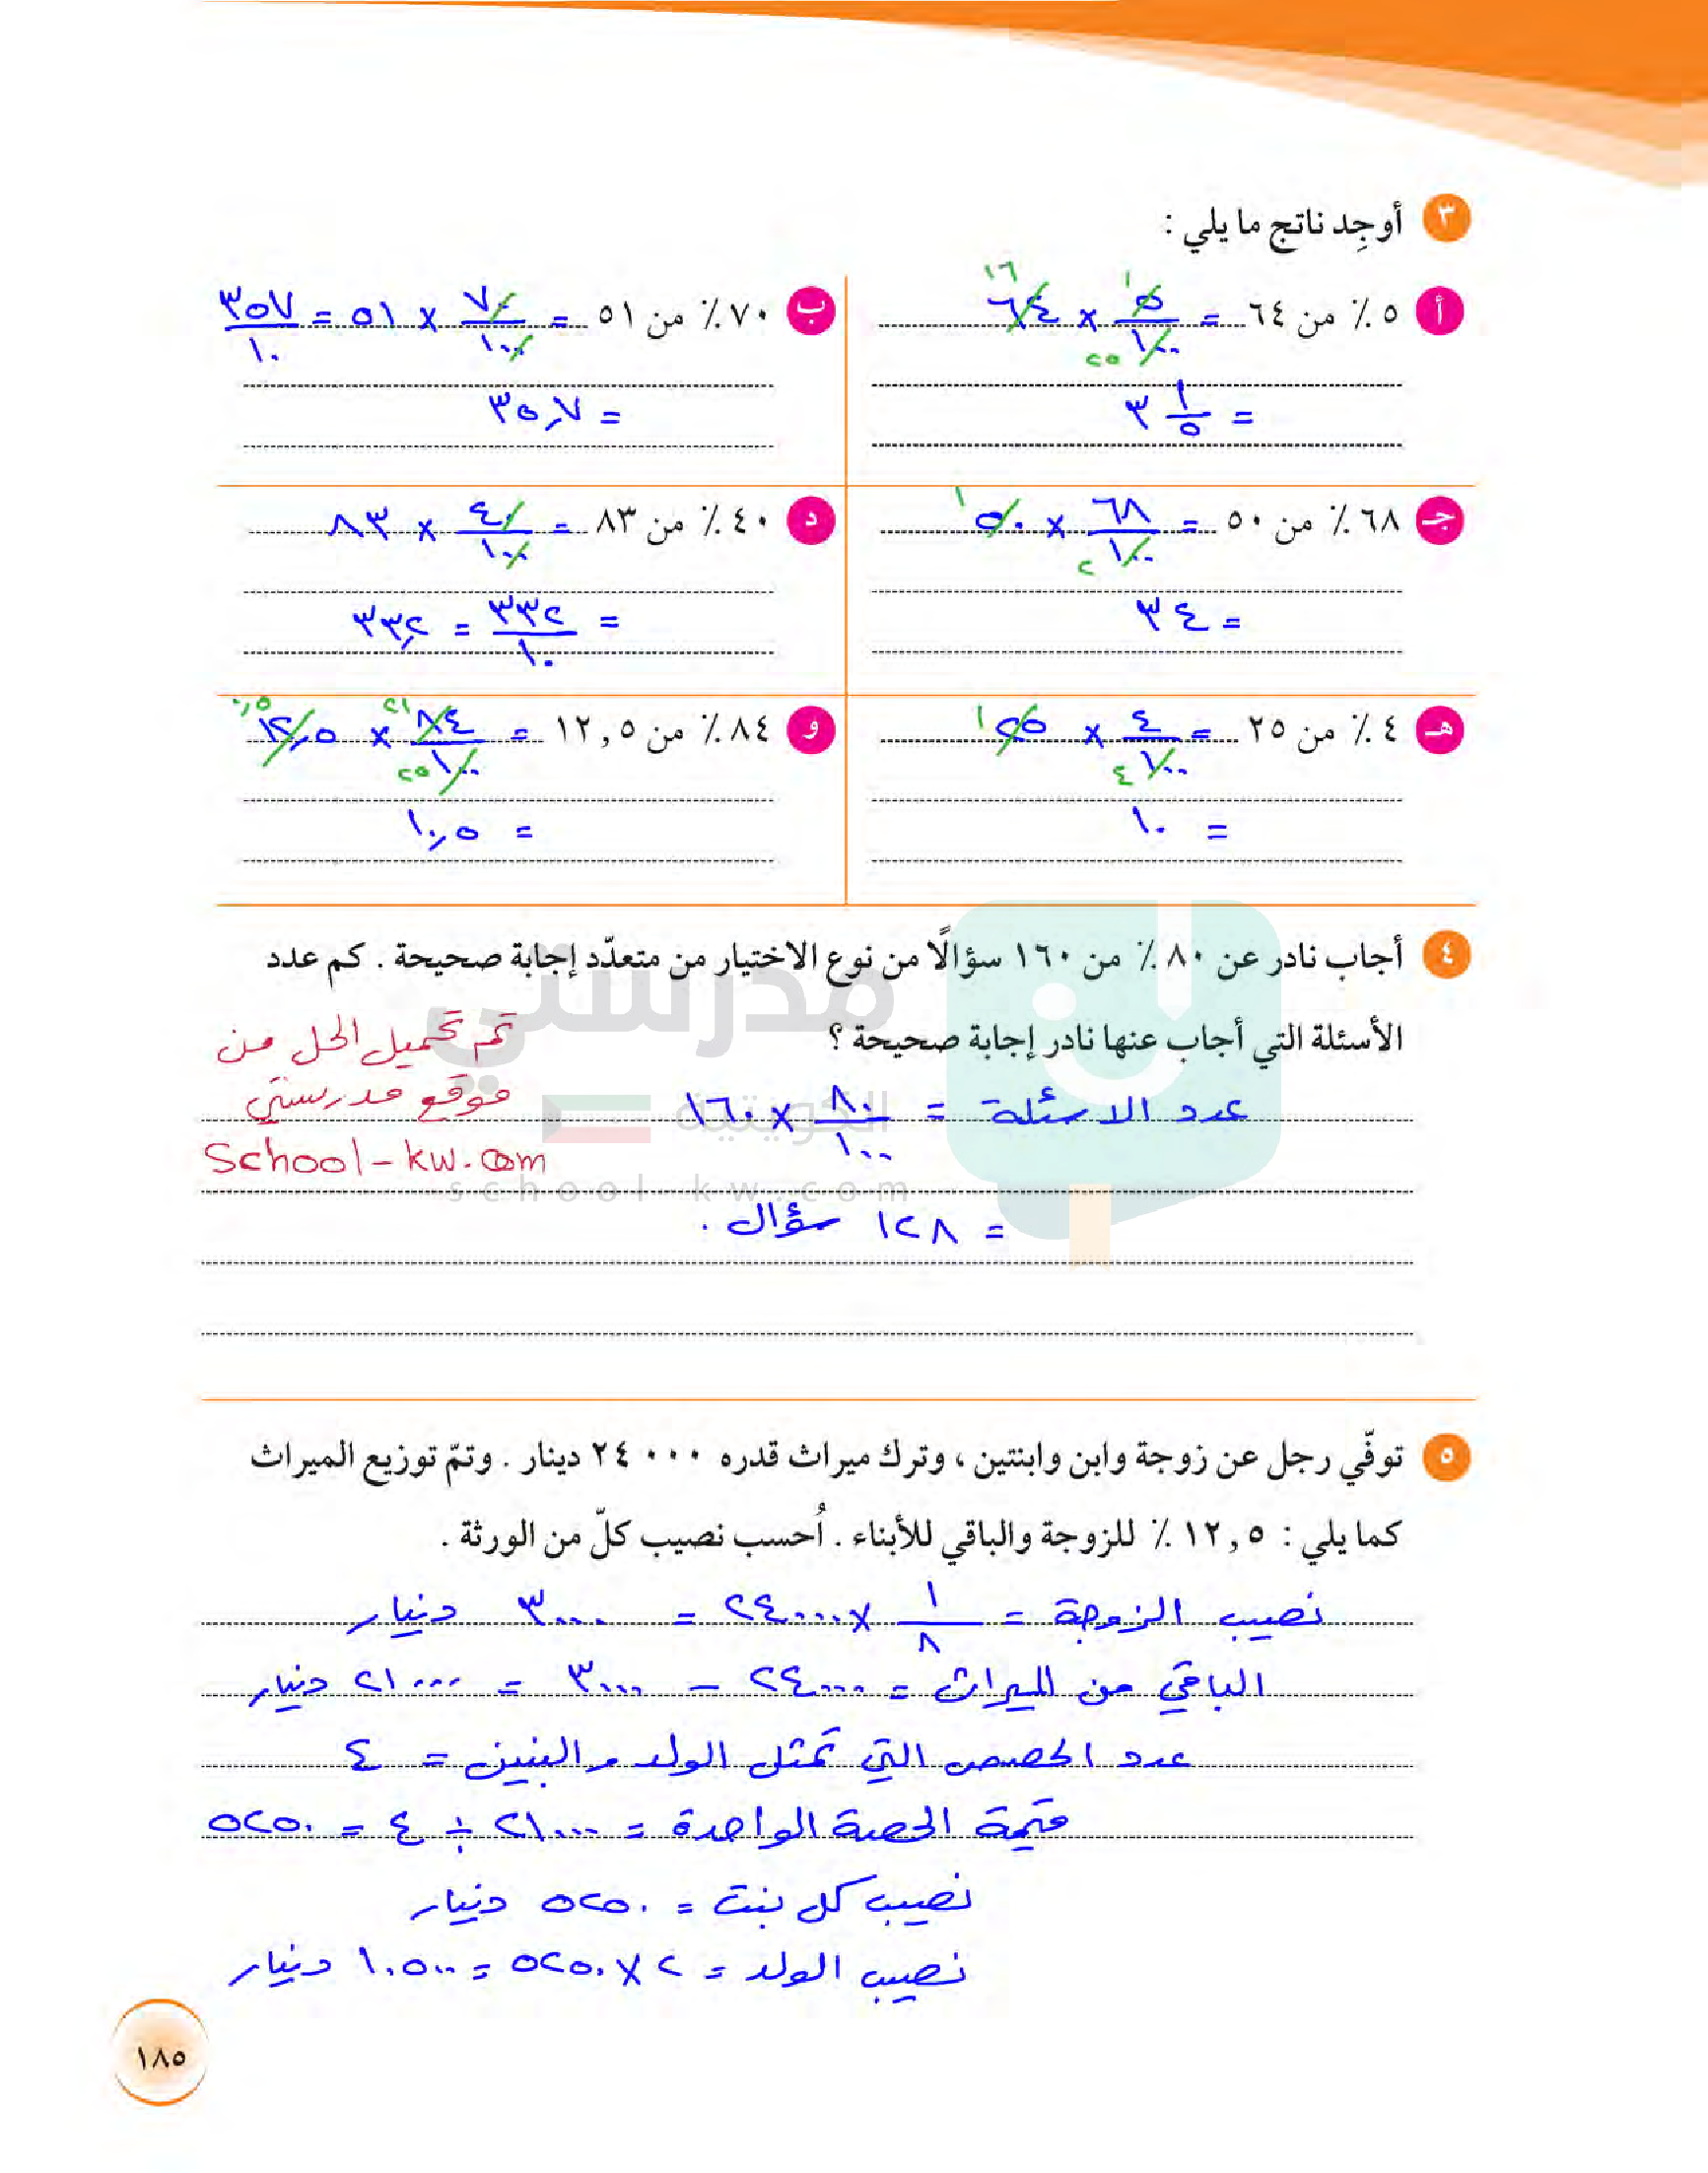 ٣ أوجِد ناتج ما يلي :
أ ٥ ٪ من ٦٤ = ٥/١٠٠ × ٦٤
١ ١٦ ٢٥
= ٣ ١/٥
ب ٧٠ ٪ من ٥١ = ٧٠/١٠٠ × ٥١ = ٣٥٧/١٠
= ٣٥,٧
جـ ٦٨ ٪ من ٥٠ = ٦٨/١٠٠ × ٥٠
١ ٢
= ٣٤
د ٤٠ ٪ من ٨٣ = ٤٠/١٠٠ × ٨٣
= ٣٣٢/١٠ = ٣٣,٢
هـ ٤ ٪ من ٢٥ = ٤/١٠٠ × ٢٥
١ ٤
= ١٠
و ٨٤ ٪ من ١٢,٥ = ٨٤/١٠٠ × ١٢,٥
٢١ ٠,٥ ٢٥
= ١٠,٥
٤ أجاب نادر عن ٨٠ ٪ من ١٦٠ سؤالًا من نوع الاختيار من متعدّد إجابة صحيحة . كم عدد
الأسئلة التي أجاب عنها نادر إجابة صحيحة ؟
تم تحميل الحل من
موقع مدرستي
school-kw.com
مدرستي
الكويتية
school-kw.com
عدد الاسئلة = ٨٠/١٠٠ × ١٦٠
= ١٢٨ سؤال .
٥ توفّي رجل عن زوجة وابن وابنتين ، وترك ميراث قدره ٢٤٠٠٠ دينار . وتمّ توزيع الميراث
كما يلي : ١٢,٥ ٪ للزوجة والباقي للأبناء . اُحسب نصيب كلّ من الورثة .
نصيب الزوجة = ١/٨ × ٢٤٠٠٠ = ٣٠٠٠ دنيار
الباقي من الميراث = ٢٤٠٠٠ – ٣٠٠٠ = ٢١٠٠٠ دنيار
عدد الحصص التي تمثل الولد والبنين = ٤
قيمة الحصة الواحدة = ٢١٠٠٠ ÷ ٤ = ٥٢٥٠
نصيب كل بنت = ٥٢٥٠ دنيار
نصيب الولد = ٢ × ٥٢٥٠ = ١٠٥٠٠ دنيار
١٨٥